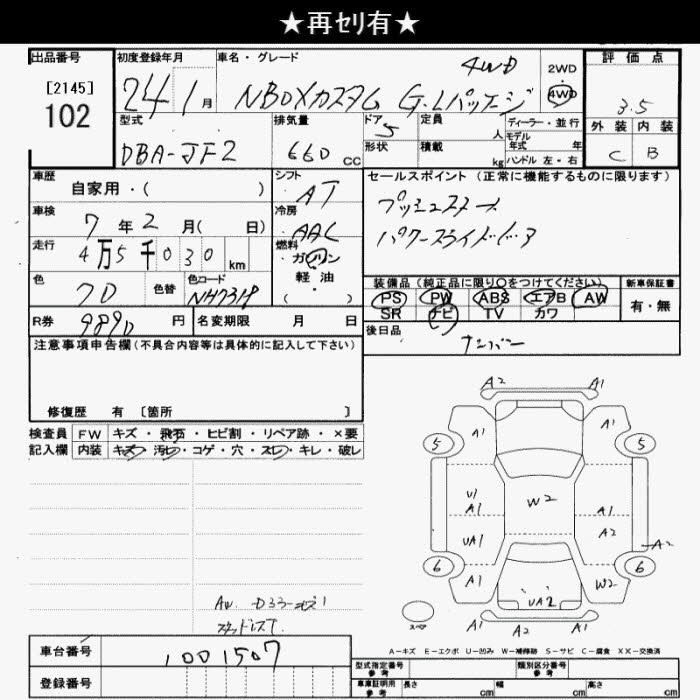 ★再ｾﾘ有★
出品番号 初度登録年月 車名・グレード 評価点
[2145]
102
24 1月 NBOXカスタム G.Lパッケージ 4WD
2WD
・
4WD
3.5
外装 内装
C B
型式 排気量 ドア 定員 ディーラー・並行
DBA-JF2 660cc 5 人 モデル年式 年
形状 積載 kg ハンドル 左・右
車歴 シフト セールスポイント (正常に機能するものに限ります)
自家用・( ) AT
プッシュスタート
車検 冷房
7年2月( 日) AAC
パワースライドドア
走行 燃料
4万5千030km ガソリン
軽油
・
( )
色 色替 色コード
装備品 (純正品に限り〇をつけてください) 新車保証書
PS PW ABS エアB AW 有・無
SR ナビ TV カワ
R券 9890円 名変期限 月 日
後日品
ナンバー
注意事項申告欄 (不具合内容等は具体的に記入して下さい)
修復歴 有 [箇所 ]
検査員 FW キズ・飛石・ヒビ割・リペア跡・×要
記入欄 内装 キズ・汚れ・コゲ・穴・スレ・キレ・破レ
A2 A1
A1 A1
5 5
W2
U1
A1 A1
UA1 A2
A2
6 6
A1 W2
UA2
A1 A2 A1
スペア
スタッドレスT.
A－キズ E－エクボ U－凹み W－補修跡 S－サビ C－腐食 XX－交換済
車台番号 1001507
登録番号
型式指定番号 参考 類別区分番号 参考
車庫証明用 参考 長さ cm 幅 cm 高さ cm